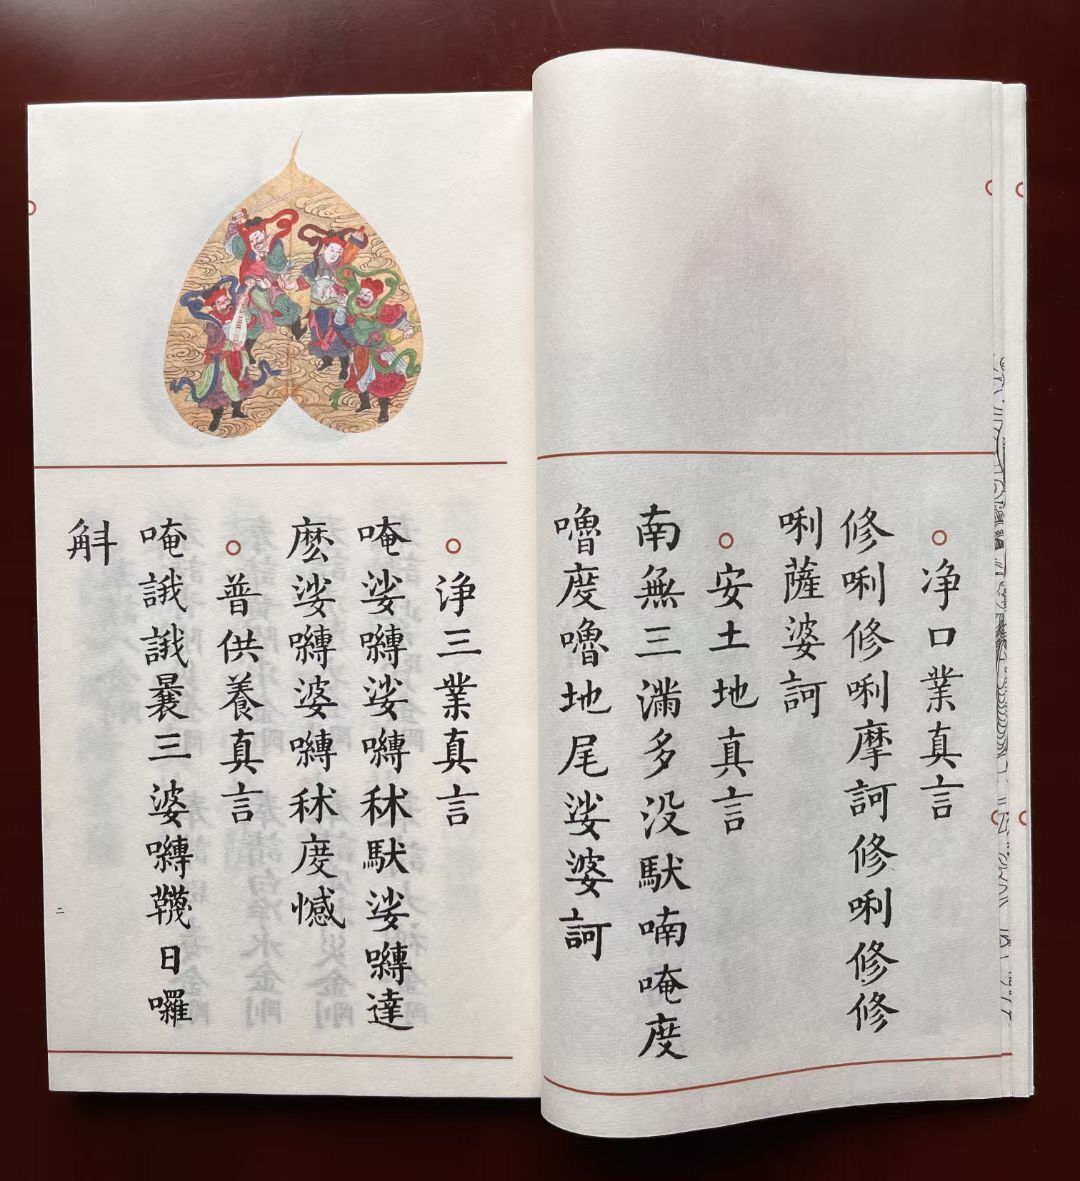 净口業真言
修唎修唎摩訶修唎修修
唎薩婆訶
安土地真言
南無三滿多没馱喃唵度
嚕度嚕地尾娑婆訶
浄三業真言
唵娑嚩娑嚩秫馱娑嚩達
麽娑嚩婆嚩秫度憾
普供養真言
唵誐誐曩三婆嚩韈日囉
斛
二